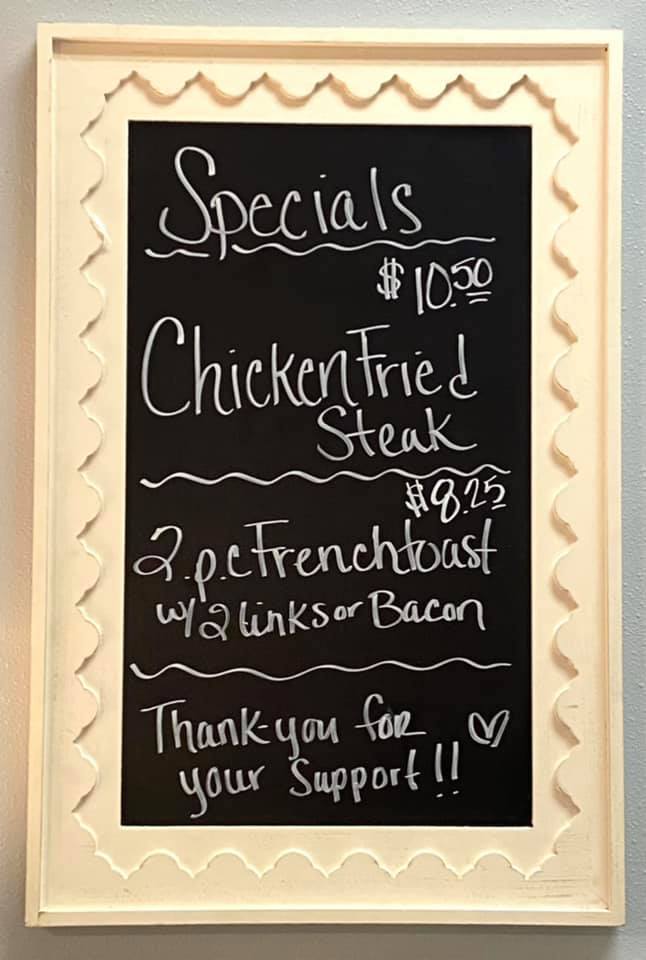 Specials
$10.50
Chicken Fried
Steak
$8.25
2.p.c French toast
w/2 links or Bacon
Thank-you for ♡
your Support!!